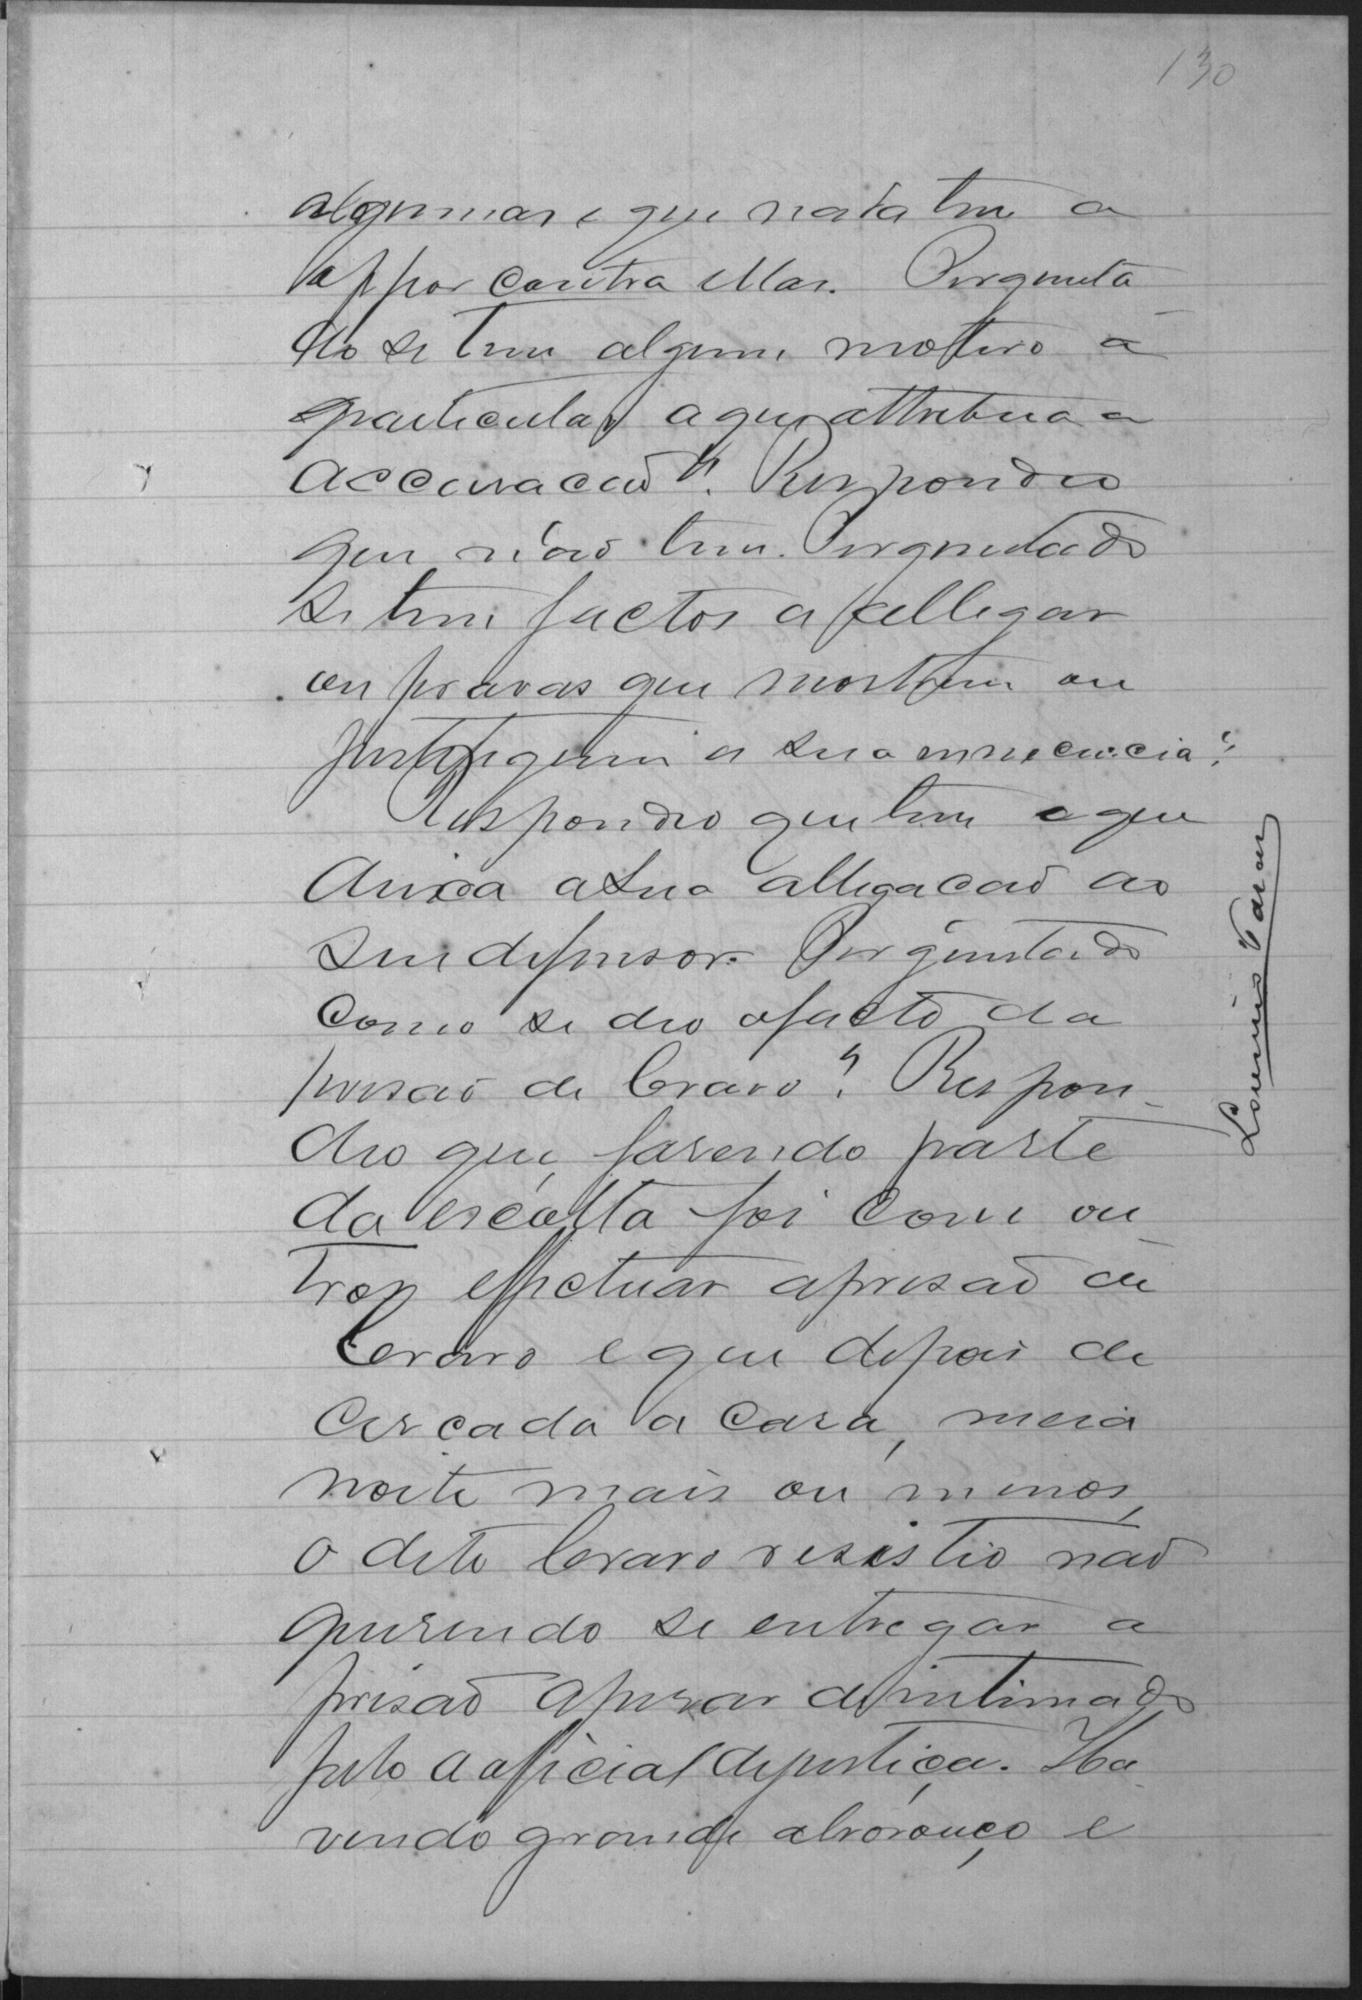 130
algumas e que nada tem a
oppor contra ellas. Pergunta
do se tem algum motivo
particular a que attribua a
accusacão? Respondeo
que não tem. Perguntado
se tem factos a allegar
ou provas que mostrem ou
justifiquem a sua innocencia?
Respondeo que tem e que
deixa a sua allegacão ao
seu defensor. Perguntado
como se deo o facto da
prisão de Cravo? Respon-
deo que, fazendo parte
da escolta foi com ou-
tros effectuar a prisão de
Cravo e que depois de
cercada a casa, meia
noite mais ou menos,
o dito Cravo resistio não
querendo se entregar a
prisão apezar de intimado
pelo official de justiça. Ha-
vendo grande alvoroço e
Lourenço